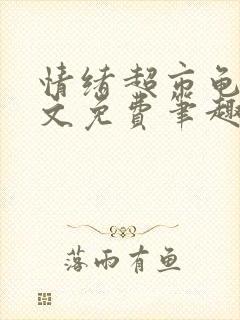 情绪超市龟
文免费笔趣
落雨有鱼